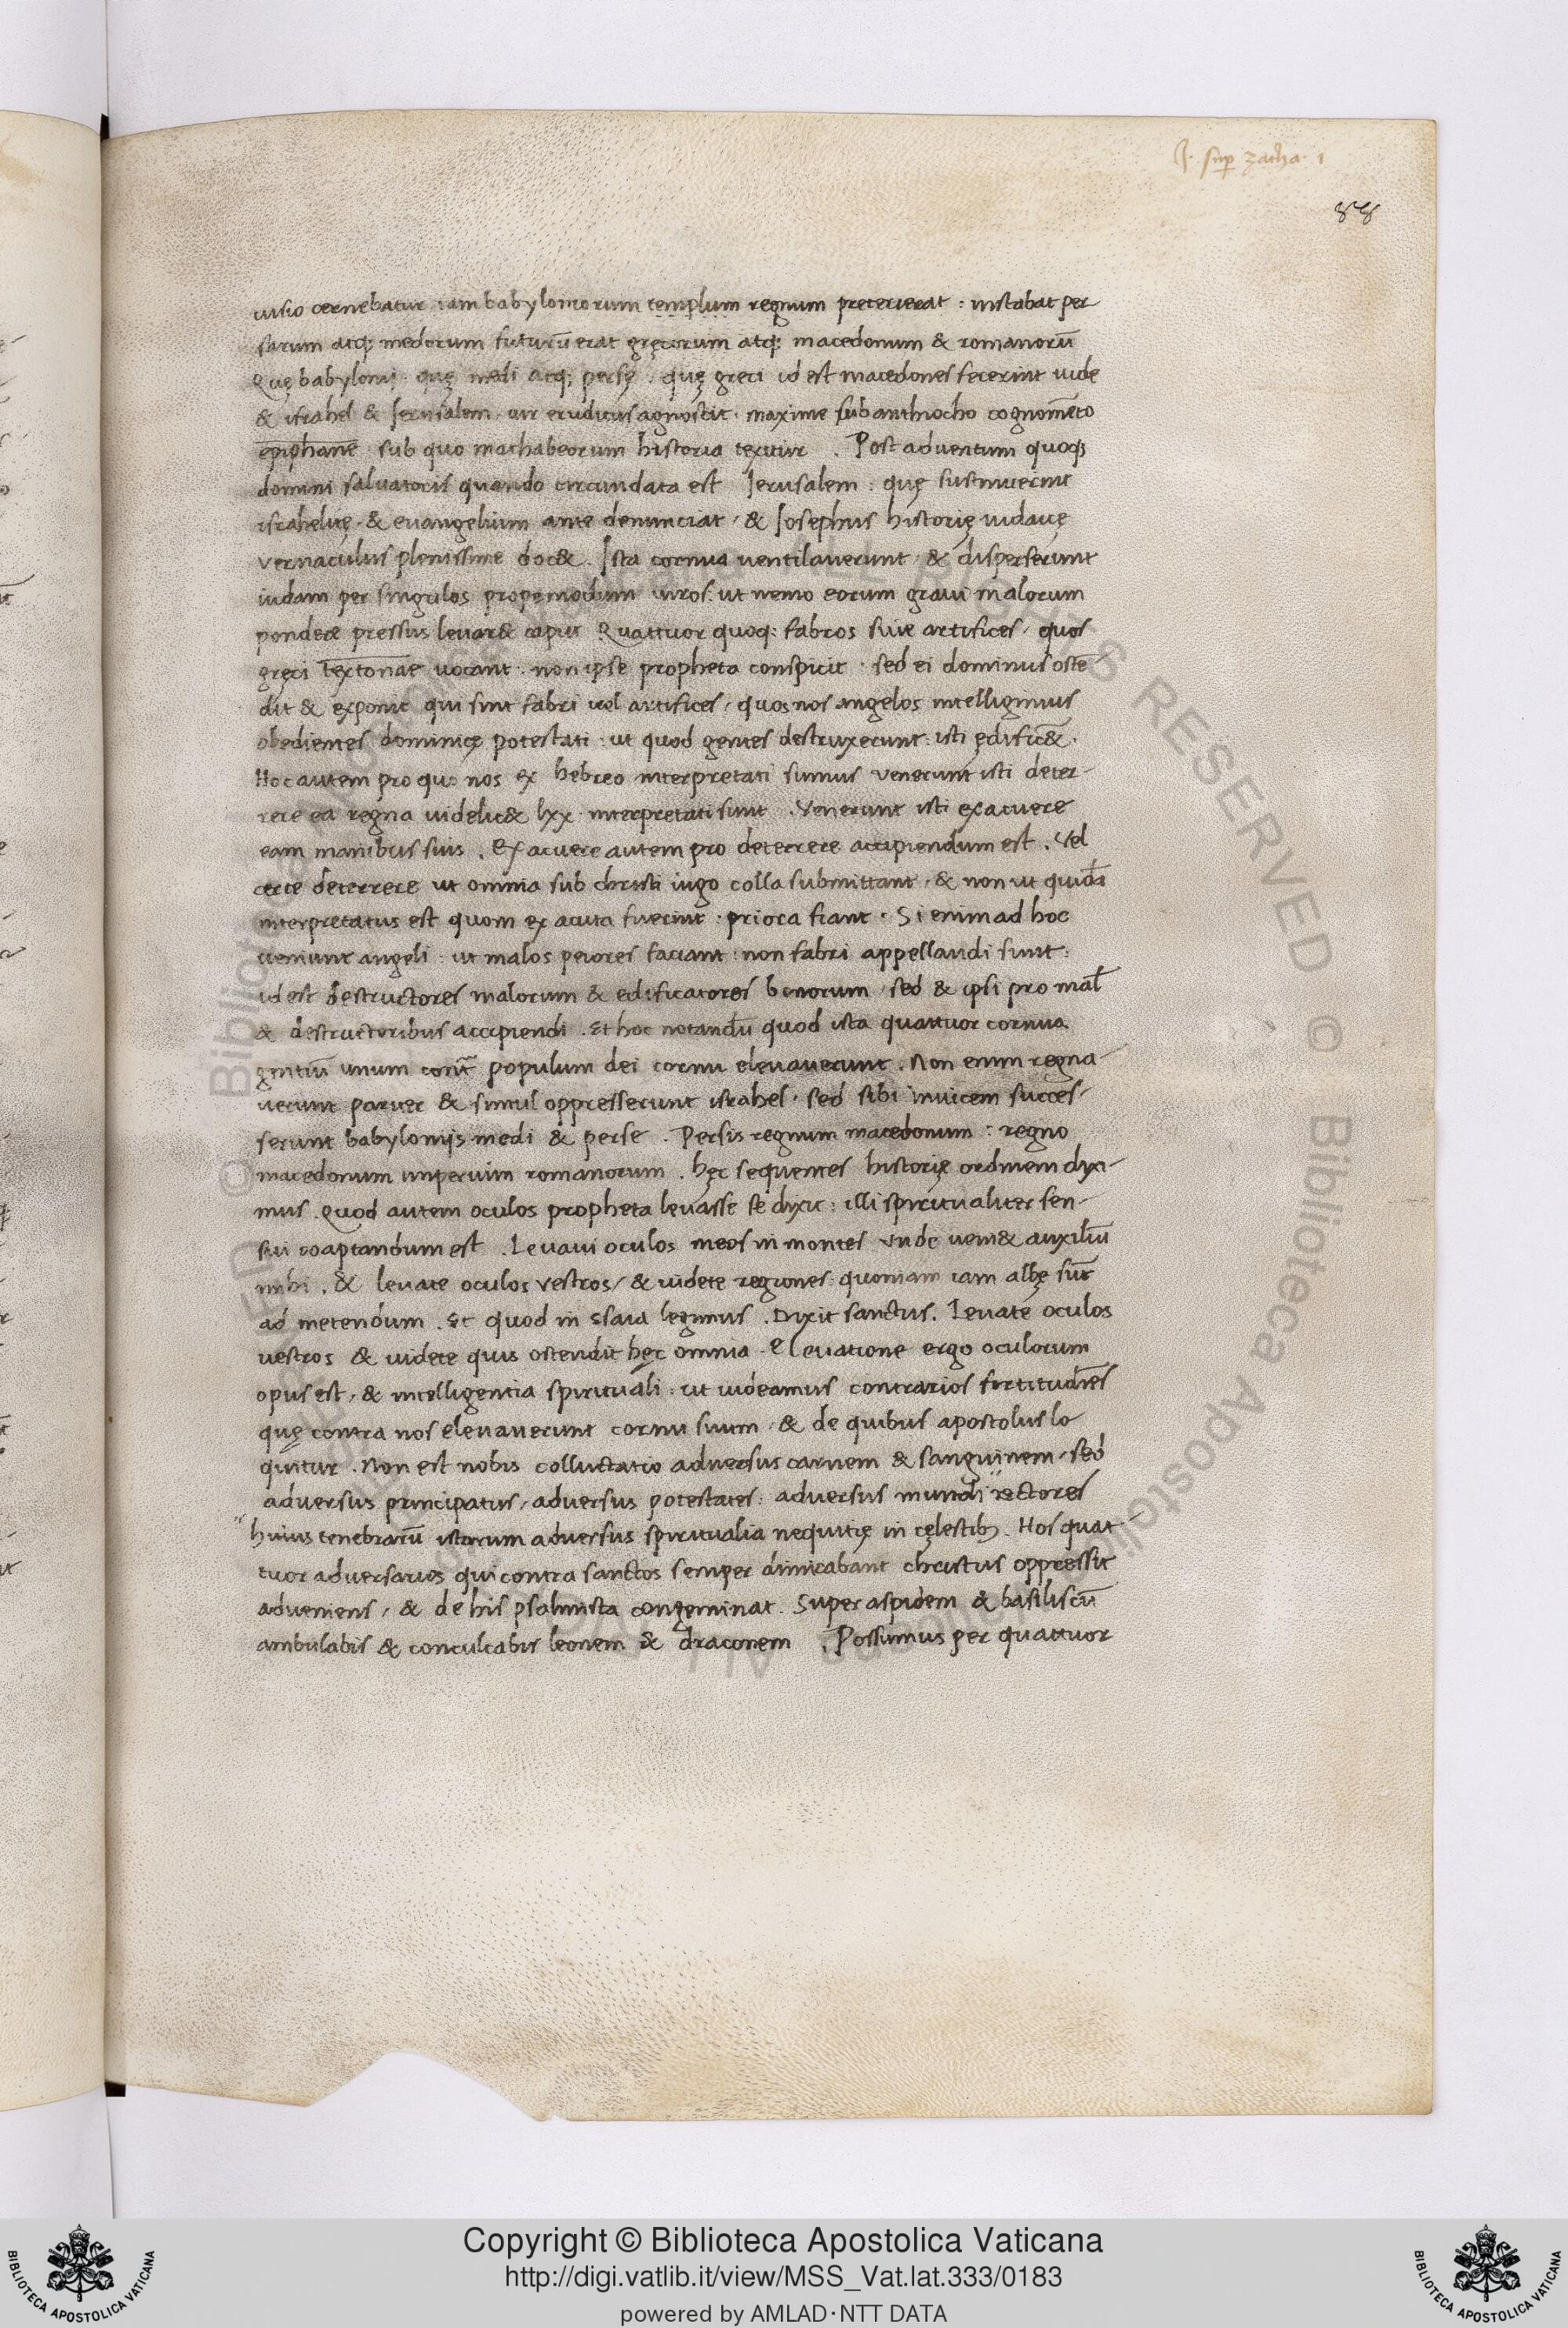 J. sup zacha. 1
88
uisio cernebatur iam babyloniorum templum regnum preterierat : instabat per
sarum atq; medorum futurū erat gręcorum atq; macedonum & romanorū
Quę babylonij . quę medi atq; persę . quę greci id est macedones fecerint iude
& israhel & Jerusalem . uir eruditus agnoscit . maxime sub anthiocho cognomēto
epiphane sub quo machabeorum historia texitur . Post adventum quoq;
domini salvatoris quando circundata est Jerusalem : quę sustinuerint
israhelitę . & evangelium ante denunciat / & Josephus historię iudaicę
vernaculus plenissime doc& . Ista cornua ventilaverunt / & disperserunt
iudam per singulos propemodum viros . ut nemo eorum gravi malorum
pondere pressus levar& caput Quattuor quoq; fabros sive artifices / quos
gręci Textonae vocant . non ipse propheta conspicit . sed ei dominus ostē
dit & exponit qui sint fabri vel artifices / quos nos angelos intelligimus
obedientes dominicę potestati : ut quod gentes destruxerunt : isti ędific& .
Hoc autem pro quo nos ex hebreo interpretati sumus venerunt isti deter-
rere ea regna videlic& lxx interpretati sunt . Venerunt isti exacuere
eam manibus suis . Exacuere autem pro deterrere accipiendum est . Vel
certe deterrere ut omnia sub christi iugo colla submittant / & non ut quidā
interpretatus est quom ex acuta fuerint . priora fiant . Si enim ad hoc
veniunt angeli : ut malos peiores faciant : non fabri appellandi sunt :
id est destructores malorum & edificatores bonorum / sed & ipsi pro mal̄
& destructoribus accipiendi . Et hoc notandū quod ista quattuor cornua
gentiū unum cont̄ populum dei cornu elevaverunt . Non enim regna-
verunt pariter & simul oppresserunt israhel . sed sibi invicem succes-
serunt babylonijs medi & perse . Persis regnum macedonum : regno
macedonum imperium romanorum . hęc sequentes historię ordinem dixi-
mus . Quod autem oculos propheta levasse se dixit : illi spiritualiter sen-
sui coaptandum est . Levavi oculos meos in montes vnde veni& auxiliū
mihi . & levate oculos vestros / & videte regiones quoniam iam albę sūt
ad metendum . Et quod in esaia legimus . Dixit sanctus . Levate oculos
vestros & videte quis ostendit hęc omnia . Elevatione ergo oculorum
opus est / & intelligentia spirituali : ut videamus contrarios fortitudīes
quę contra nos elevaverunt cornu suum / & de quibus apostolus lo
quitur . Non est nobis colluctatio adversus carnem & sanguinem / sed
adversus principatus / adversus potestates : adversus mundi " rectores
" huius tenebrarū istarum adversus spiritualia nequitię in cęlestib; . Hos quat-
tuor adversarios qui contra sanctos semper dimicabant christus oppressit
adveniens / & de his psalmista congeminat . Super aspidem & basiliscū
ambulabis & conculcabis leonem & draconem . Possumus per quattuor
Copyright © Biblioteca Apostolica Vaticana
http://digi.vatlib.it/view/MSS_Vat.lat.333/0183
powered by AMLAD·NTT DATA
BIBLIOTECA APOSTOLICA VATICANA
BIBLIOTECA APOSTOLICA VATICANA